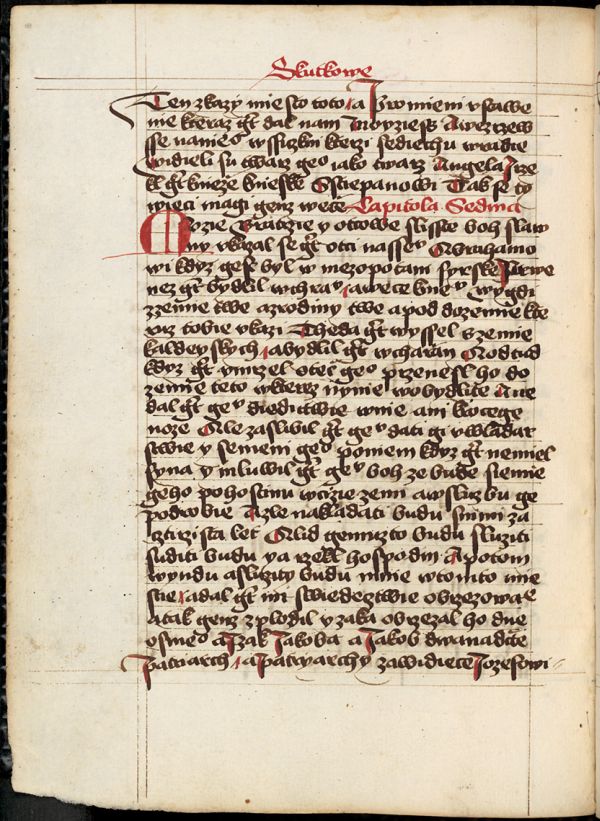 Skutkowe
Ten zkazy miesto toto a promieni vstawe
nie kteraz gt dal nam Moyziess A wezrzew
sse nanieo wssiczkni kterzi sediechu w radie
widieli su twarz geo iako twarz Angela I rze
kl gt knieze knieske Sstiepanowi Tak se ty
wieci magi genz wece Capitola Sedma
Mozie bratrzie y otcowe slisste boh slaw
ny vkazal se gt otci nassev Abrahamo
wi kdyz gest byl w mezopotani syrske Prwe
nez gt bydlil w chrav a wece knev wygdi
z zemie twe a z rodiny twe a pod do zemie kte
ruz tobie vkazi Theda gt wyssel z zemie
kaldeyskych a bydlil gt w charan A odtud
kdyz gt vmrzel otec geo przenesl ho do
zemie teto w kterez nynie wy bydlite A ne
dal gt gev diedictwie w nie ani krocege
noze Ale zaslibil gt gev dati gi v wladar
stwie y semeni geo po niem kdyz gt nemiel
syna y mluwil gt gev boh ze bude siemie
geho pohostinu w cizie zemi a w sluzbu ge
podrobie A zle nakladati budu s nimi za
cztirzista let A lid gemuzto budu sluziti
suditi budu ya rzekl hospodin A potom
wyndu a sluzity budu mnie w tomto mie
stie a dal gt im swiedecztwie obrzezowae
a tak genz zplodil yzaka obrzezal ho dne
osmeo a Izak Jakoba a Jakob dwanadcte
patriarch a patryarchy zawidiece Jozefowi